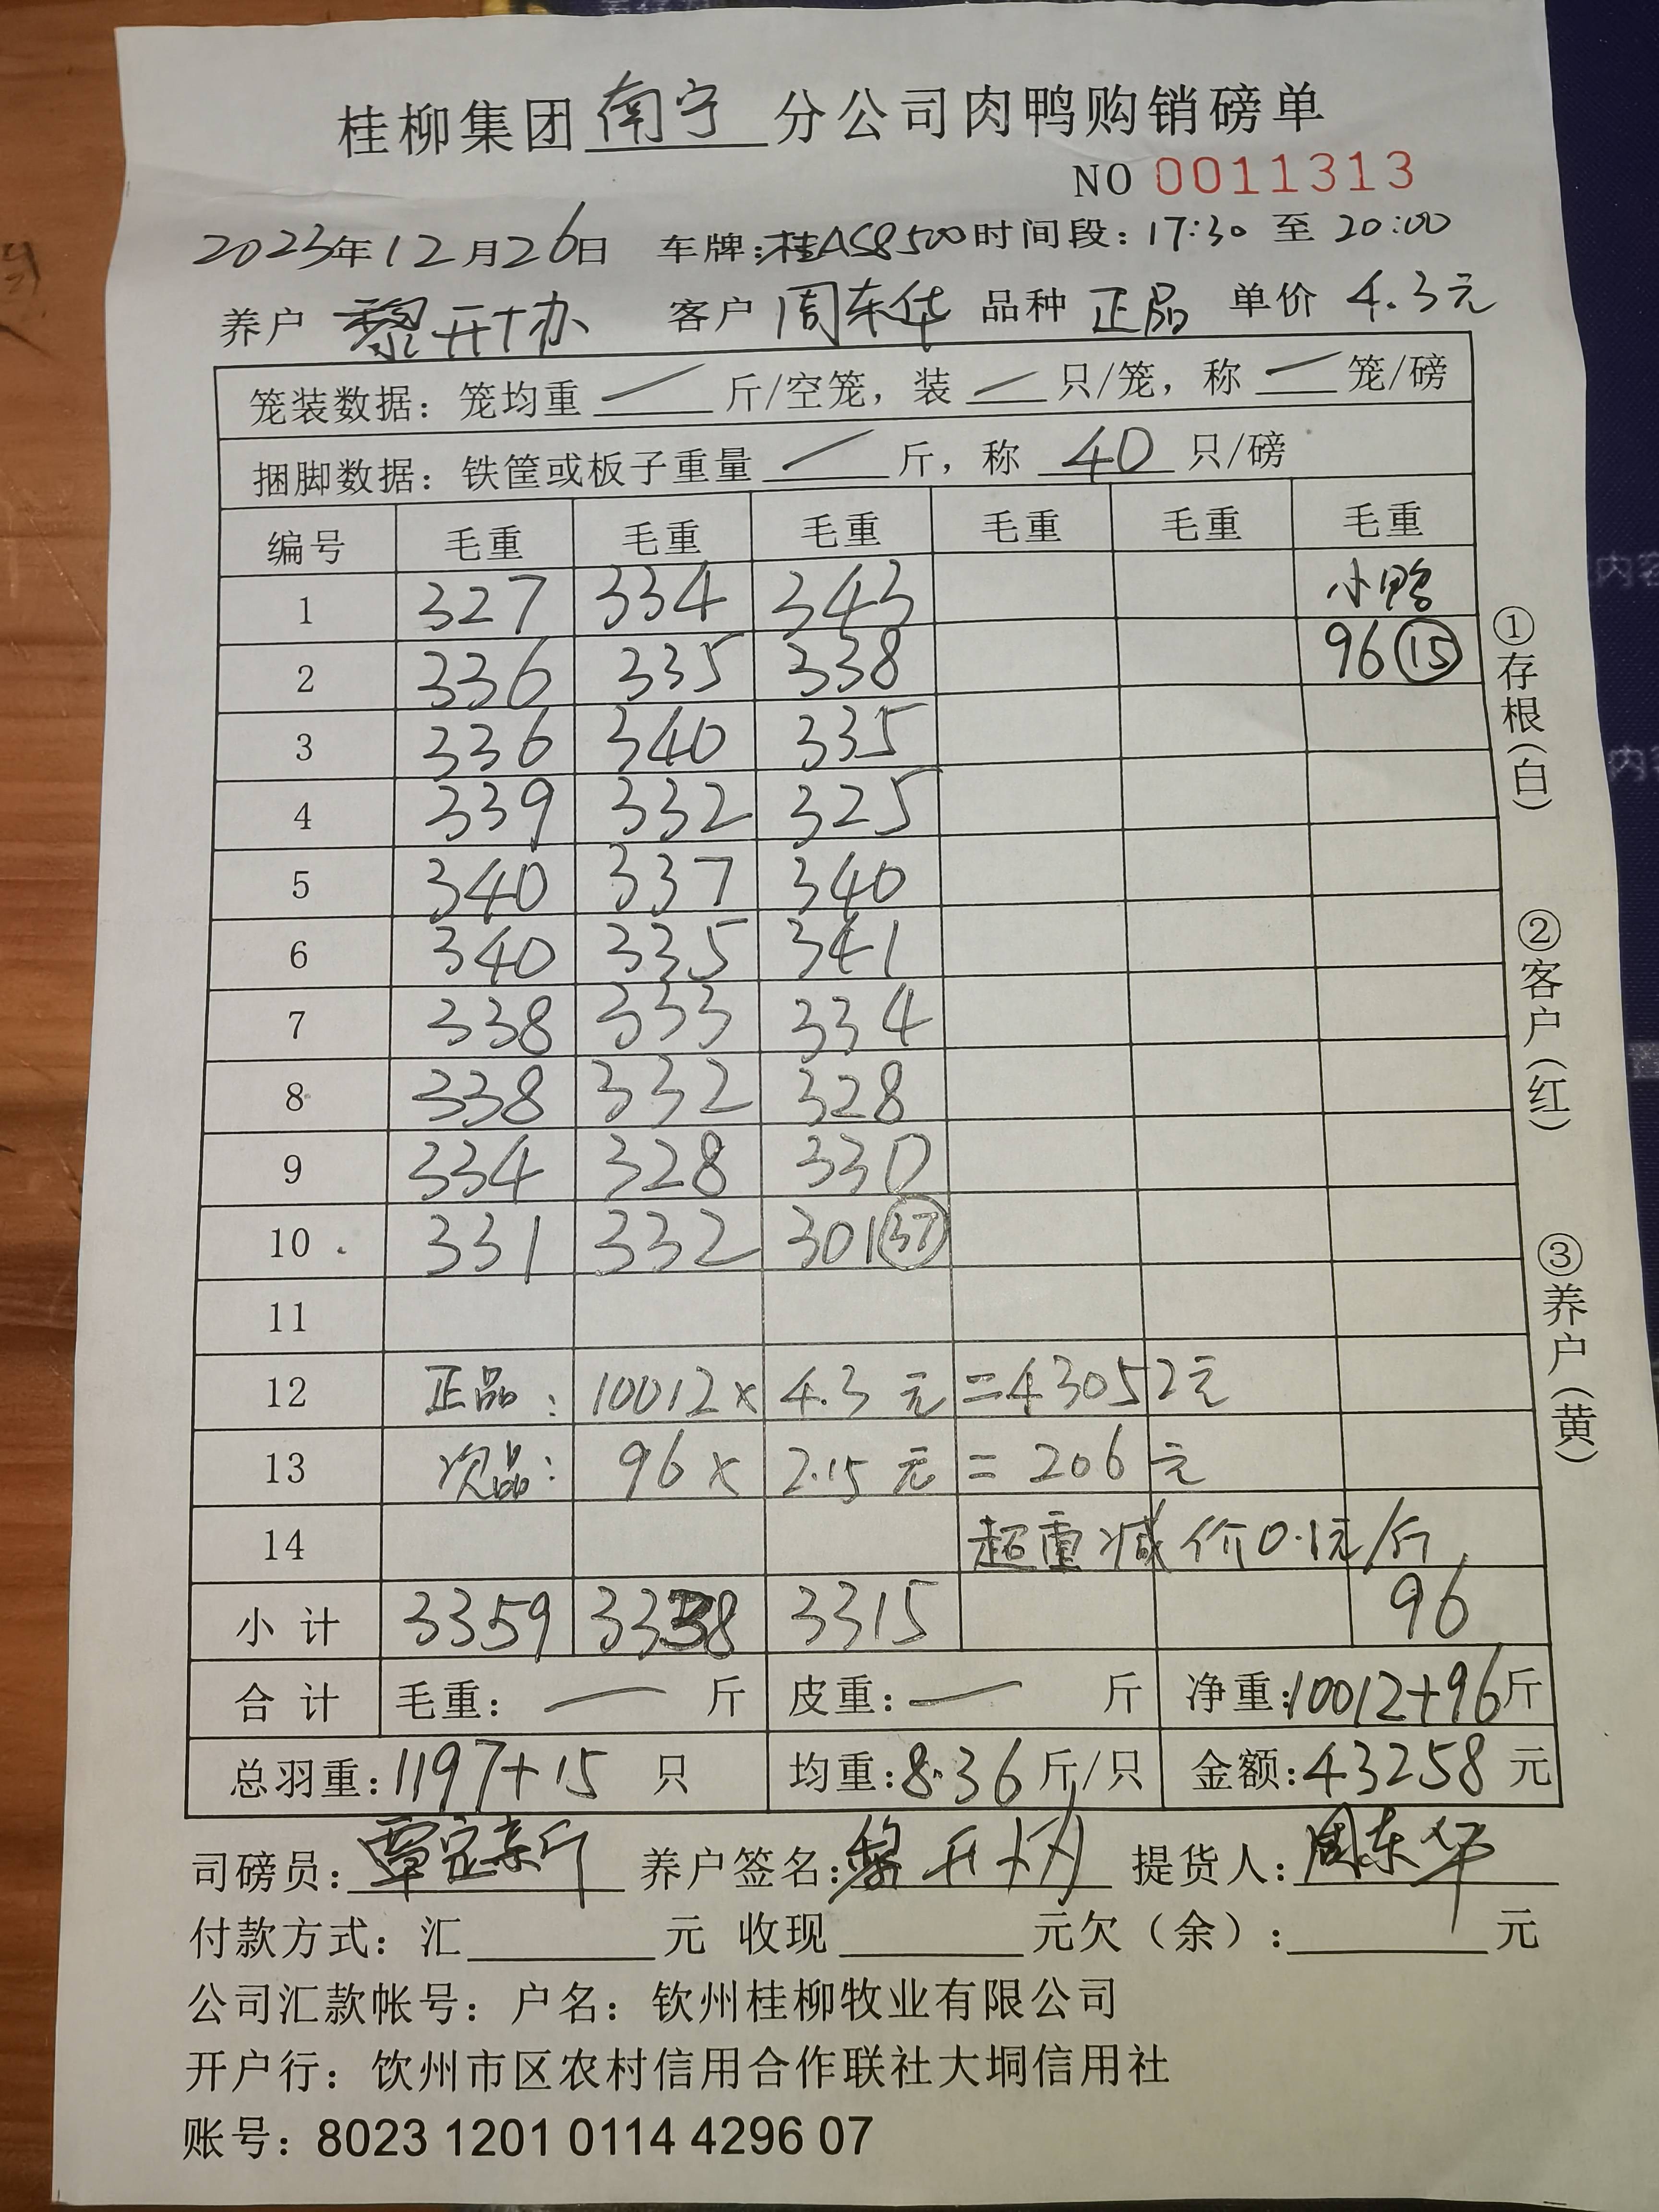 桂柳集团南宁分公司肉鸭购销磅单
NO 0011313
2023年12月26日 车牌:桂AS8500 时间段:17:30 至 20:00
养户 黎开 客户 周东华 品种 正品 单价 4.3元
笼装数据:笼均重 — 斤/空笼,装 — 只/笼,称 — 笼/磅
捆脚数据:铁筐或板子重量 — 斤,称 40 只/磅
编号 毛重 毛重 毛重 毛重 毛重 毛重
1 327 334 343 小鸭
2 336 335 338 96 ⑮
3 336 340 335
4 339 332 325
5 340 337 340
6 340 335 341
7 338 333 334
8 338 332 328
9 334 328 330
10 331 332 301 ㊲
11
12 正品: 10012× 4.3元 =43052元
13 次品: 96× 2.15元 =206元
14 超重减价0.1元/斤
小计 3359 3338 3315 96
合计 毛重: — 斤 皮重: — 斤 净重:10012+96斤
总羽重:1197+15 只 均重:8.36斤/只 金额:43258元
司磅员: 养户签名:黎开 提货人:周东华
付款方式:汇 元 收现 元欠(余): 元
公司汇款帐号:户名:钦州桂柳牧业有限公司
开户行:饮州市区农村信用合作联社大垌信用社
账号:8023 1201 0114 4296 07
①存根(白)
②客户(红)
③养户(黄)